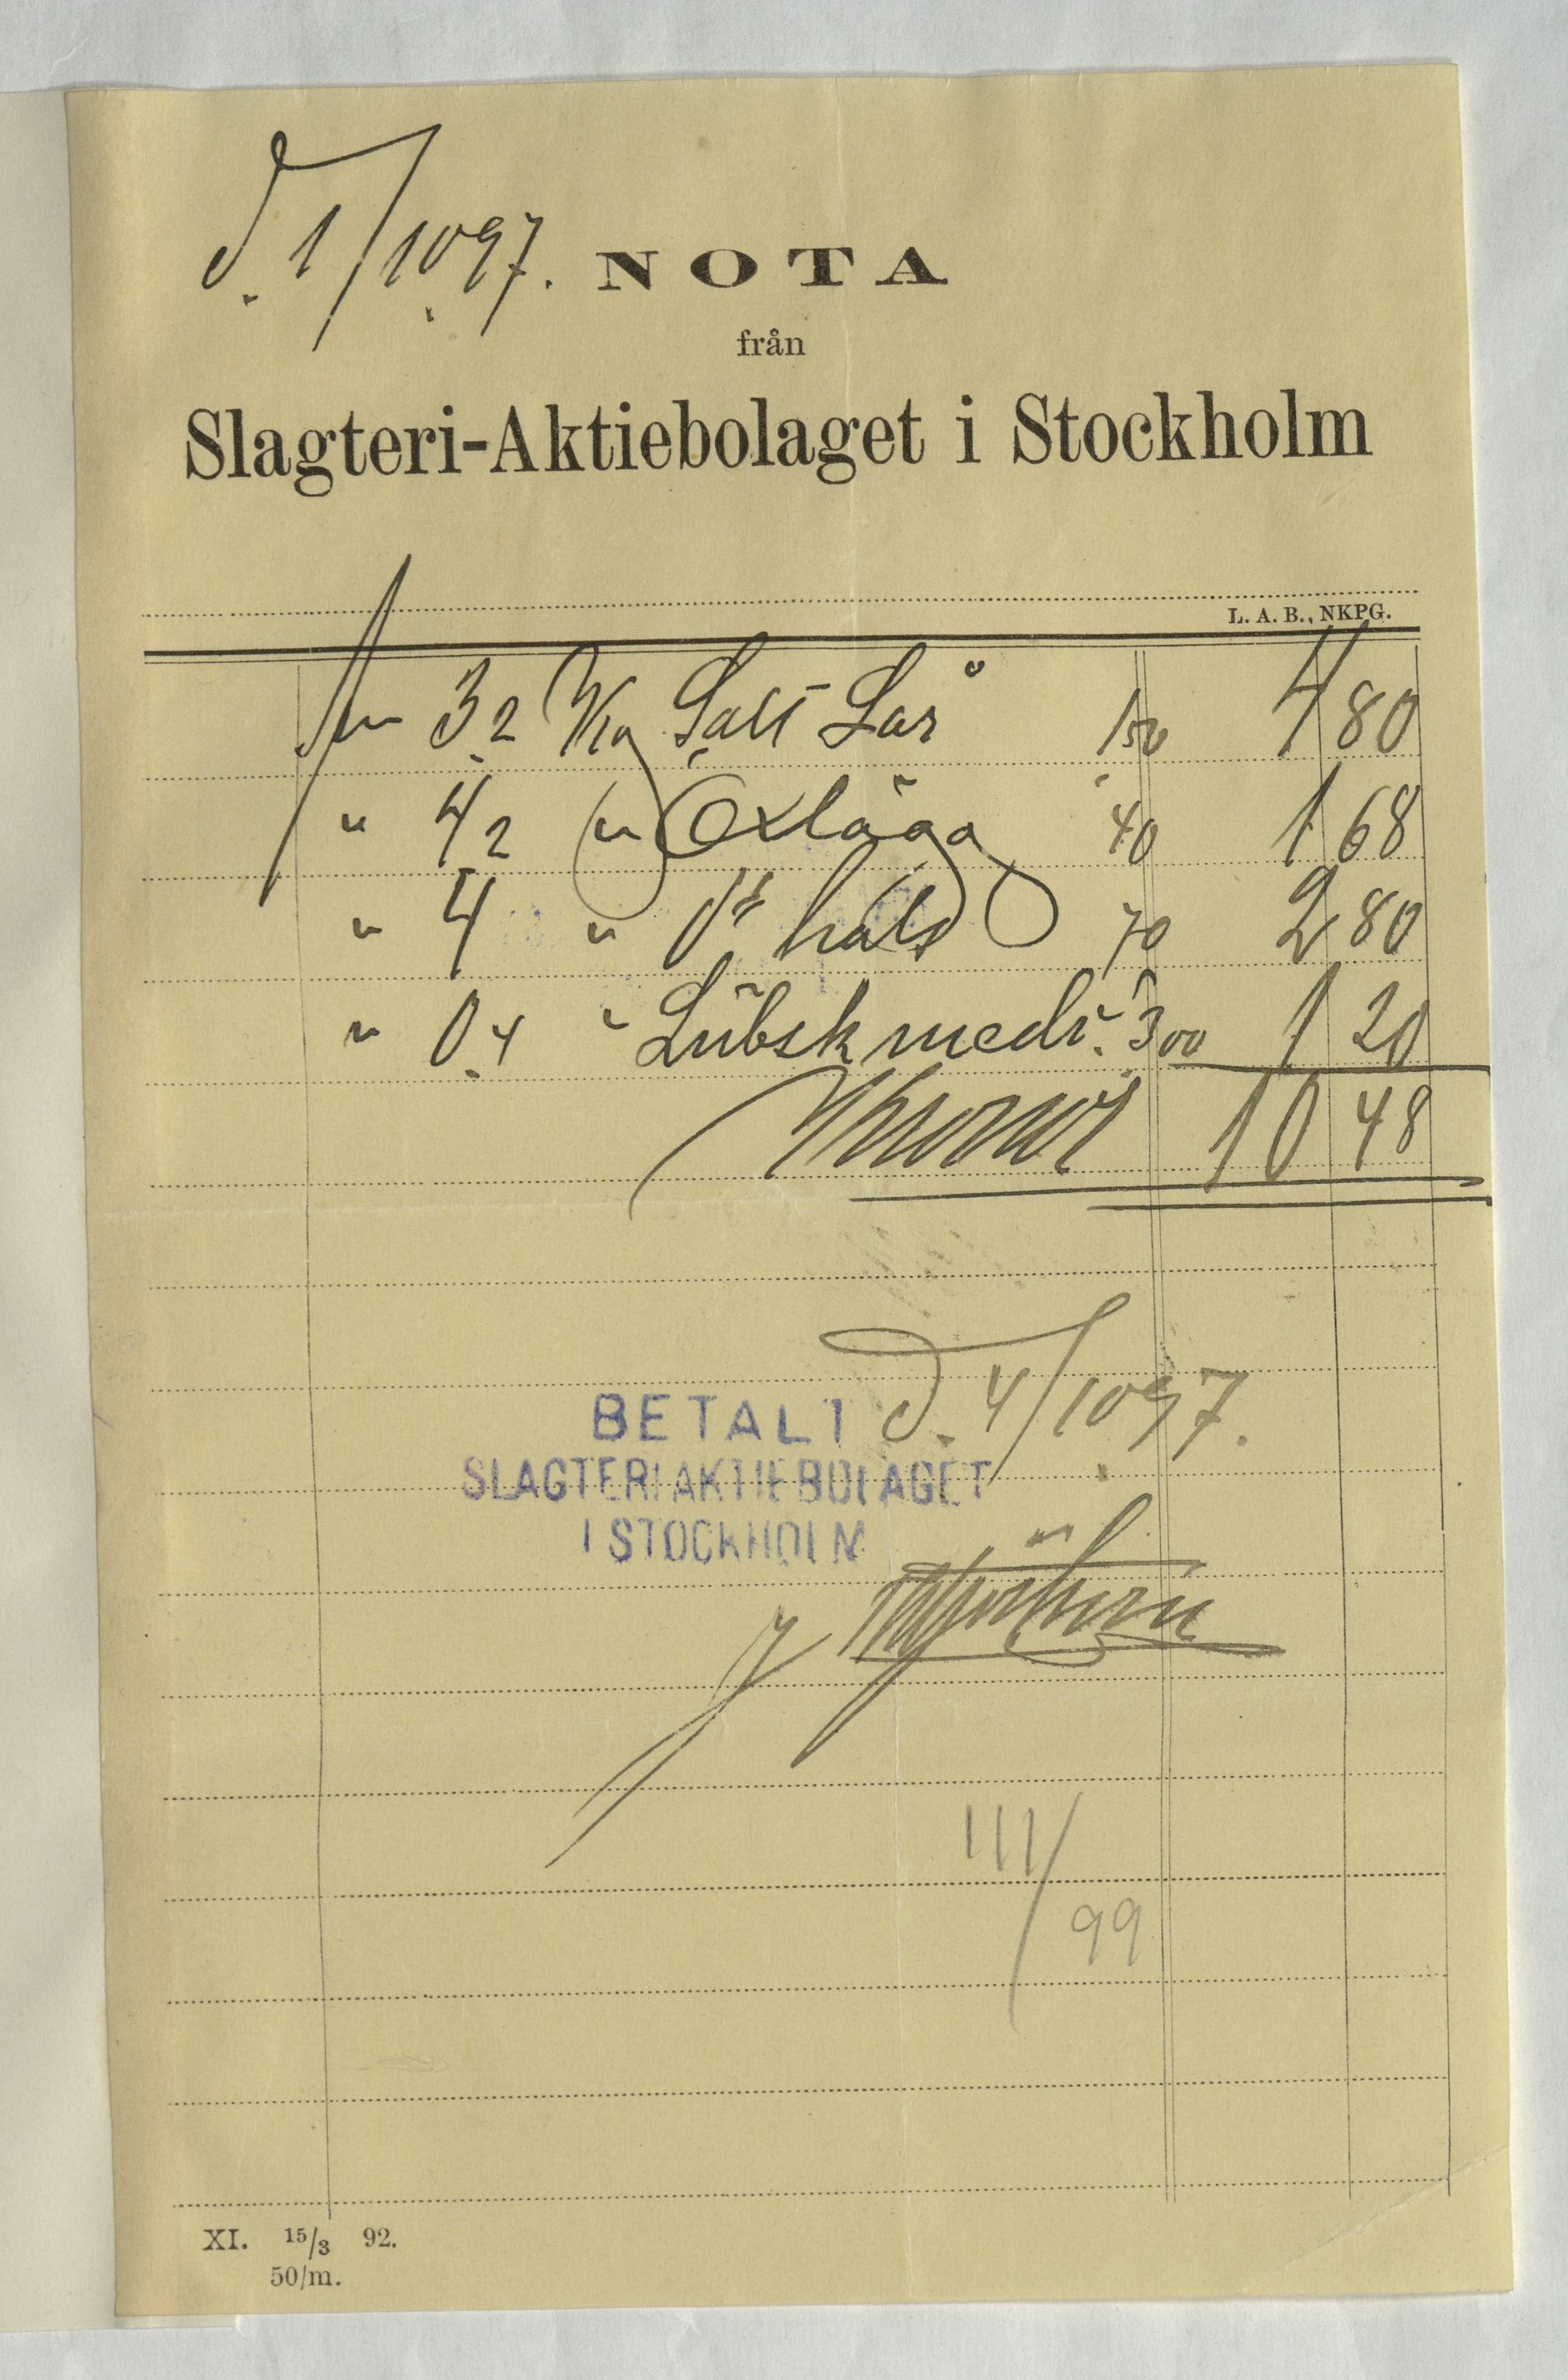 d. 1/10 97.
NOTA
från
Slagteri-Aktiebolaget i Stockholm
L. A. B., NKPG.
3,2 Kg Salt Lår 1,50 4 80
" 4,2 " Oxlägg 40 1 68
" 4 " do hals 70 2 80
" 0,4 " Lübsk medv. 3,00 1 20
Kronor 10 48
BETALT d. 4/10 97.
SLAGTERIAKTIEBOLAGET
I STOCKHOLM
111/99
XI. 15/3 92.
50/m.